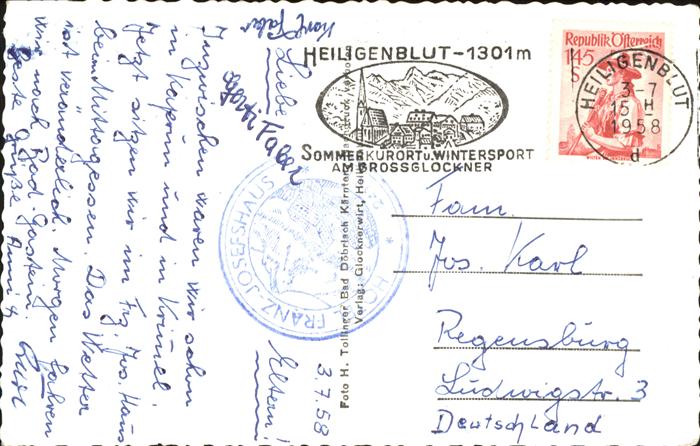 Liebe Eltern!
3.7.58
Inzwischen waren wir schon
in Kaprun und in Krimml.
Jetzt sitzen wir im Frz. Jos. Haus
beim Mittagessen. Das Wetter
ist veränderlich. Morgen fahren
wir nach Bad. Gastein.
Beste Grüße Anni &
Karl Faber
Gerti Faber
HEILIGENBLUT-1301m
SOMMERKURORT u. WINTERSPORT
AM GROSSGLOCKNER
Republik Österreich
1·45
S
HEILIGENBLUT
3-7
15 H
1958
d
HOTEL FRANZ-JOSEFSHAUS
Foto H. Tollinger Bad Döbriach Kärnten
Verlag: Glocknerwirt, Heil
Fam.
Jos. Karl
Regensburg
Ludwigstr. 3
Deutschland